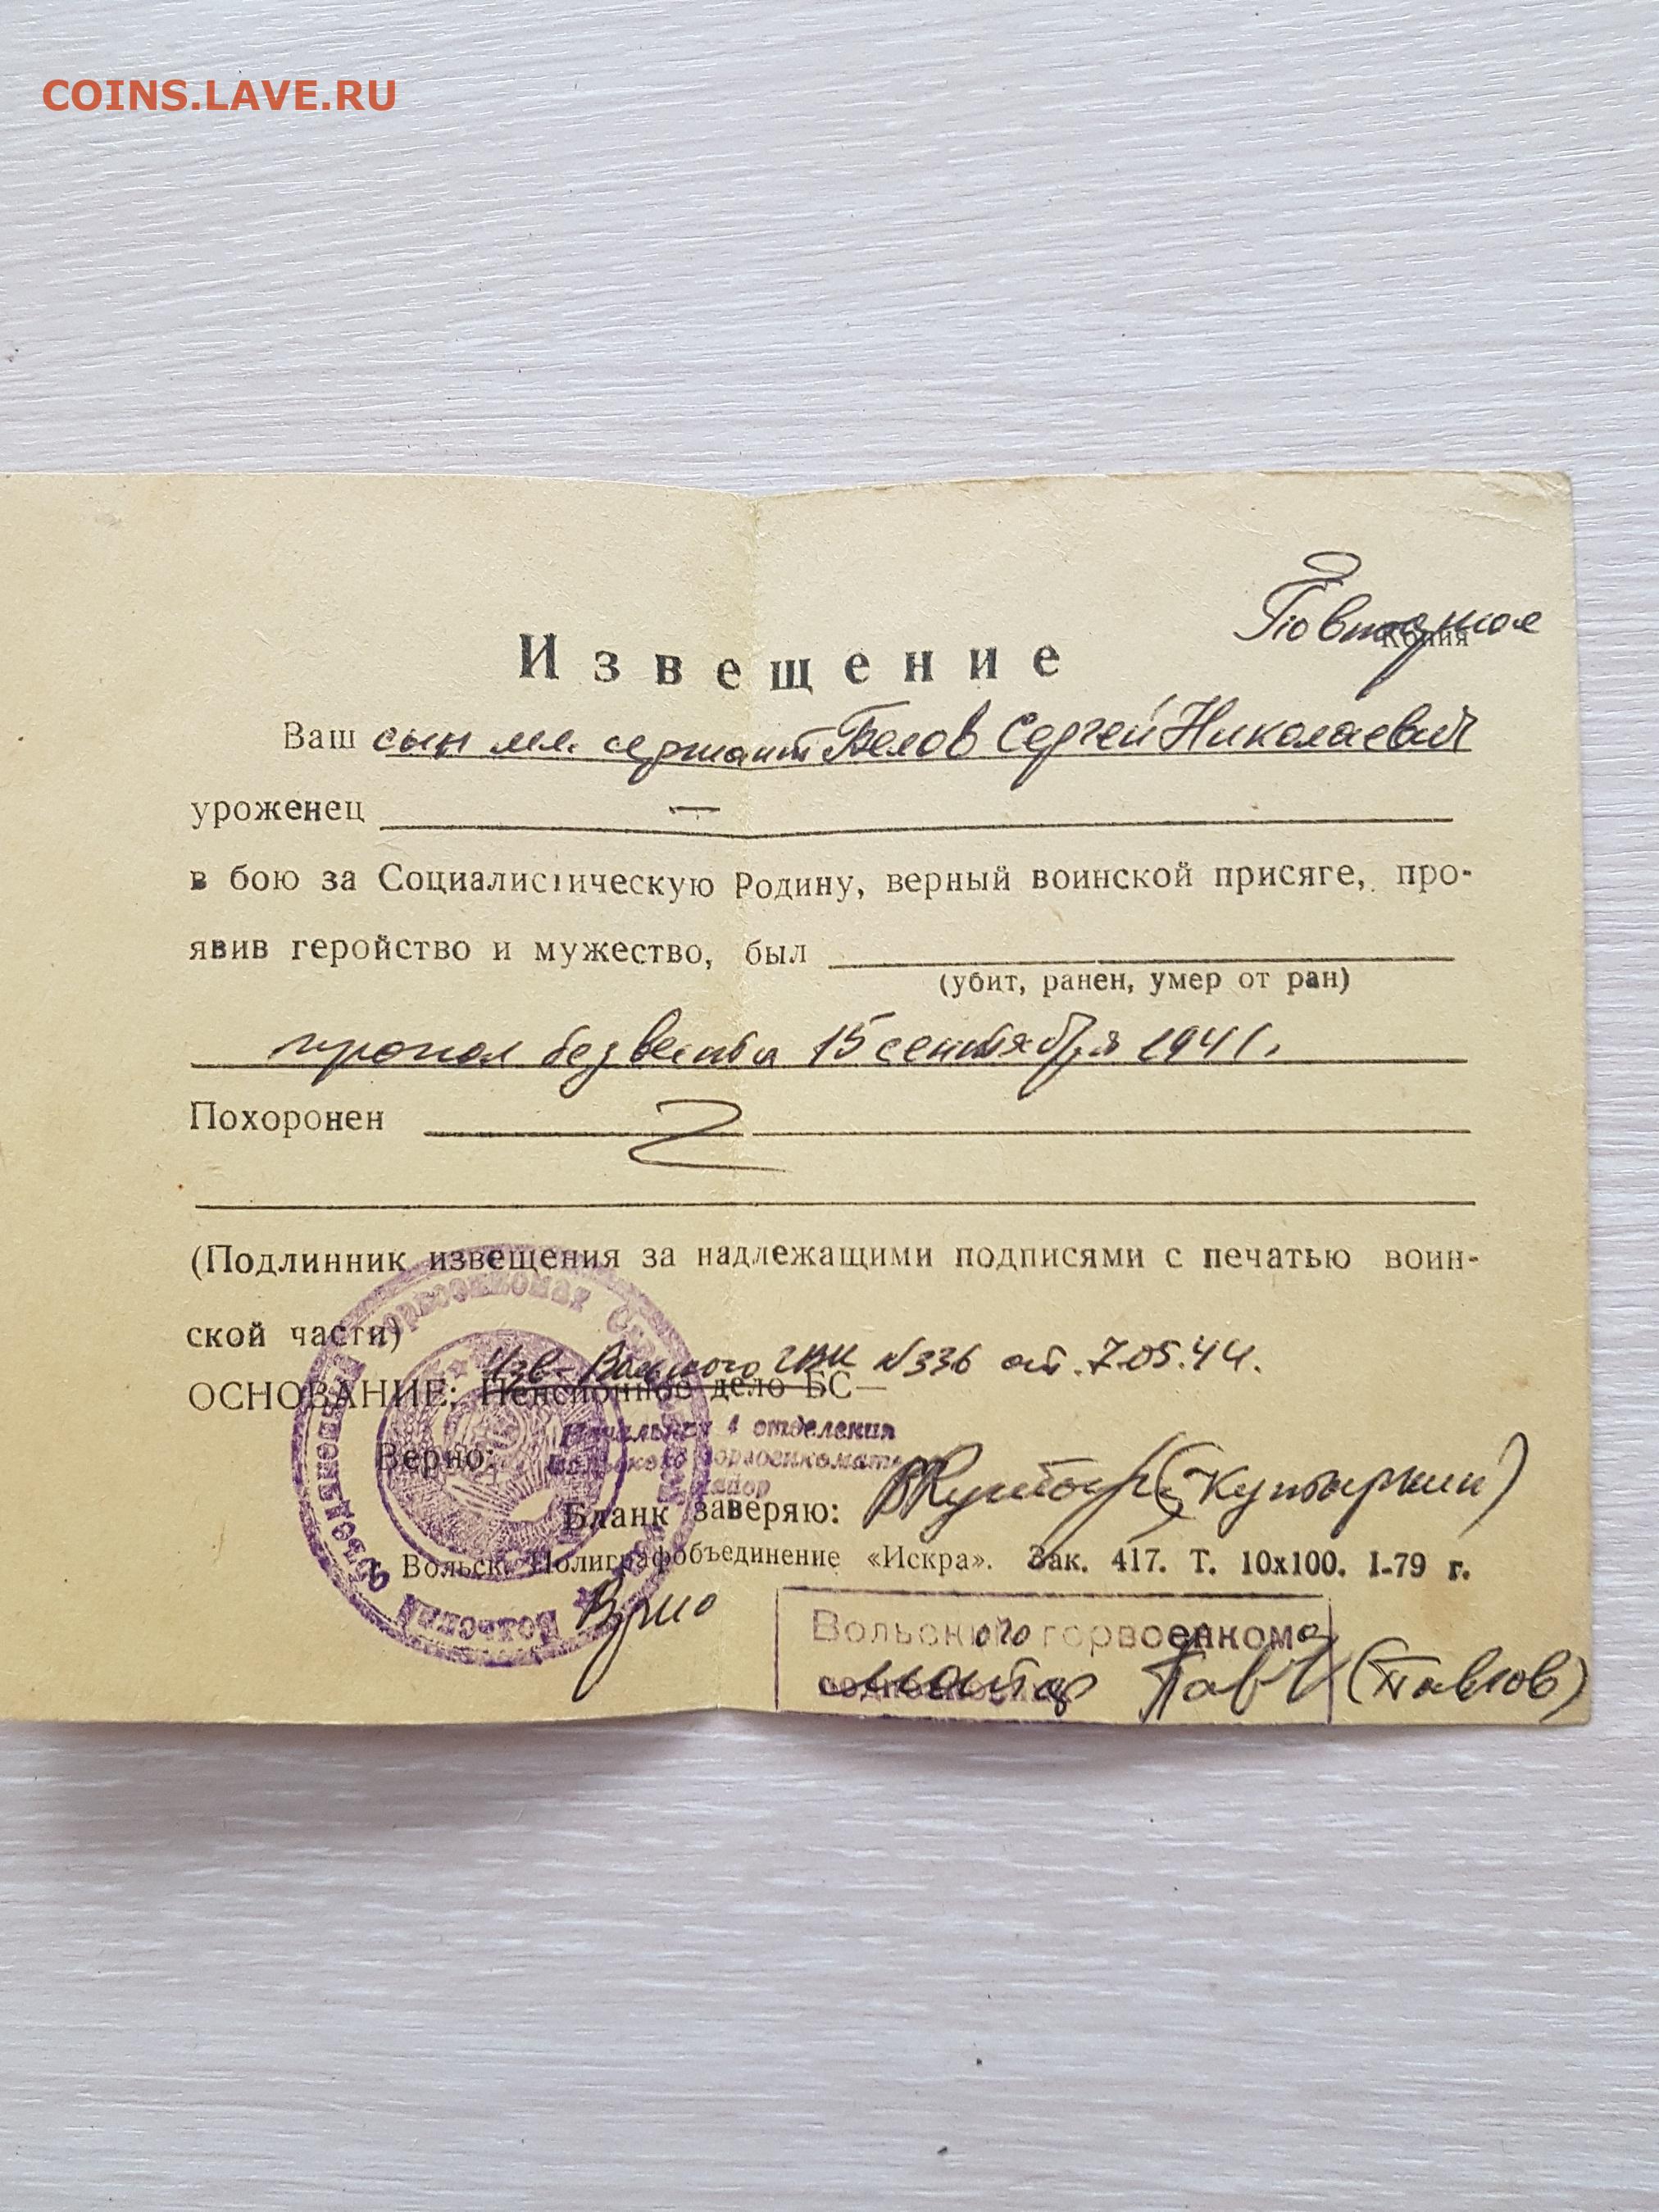 COINS.LAVE.RU
Повторное
Копия
Извещение
Ваш сын мл. сержант Белов Сергей Николаевич
уроженец —
в бою за Социалистическую Родину, верный воинской присяге, про-
явив геройство и мужество, был
(убит, ранен, умер от ран)
пропал без вести 15 сентября 1941 г.
Похоронен
(Подлинник извещения за надлежащими подписями с печатью воин-
ской части)
Изв- Вольского ГВК №336 от 7.05.44.
ОСНОВАНИЕ: Пенсионное дело БС—
Начальник 1 отделения
Вольского горвоенкомата
майор
Верно:
Бланк заверяю: (Кутыркин)
г. Вольск. Полиграфобъединение «Искра». Зак. 417. Т. 10х100. I-79 г.
Врио
Вольского горвоенкома
майор (Павлов)